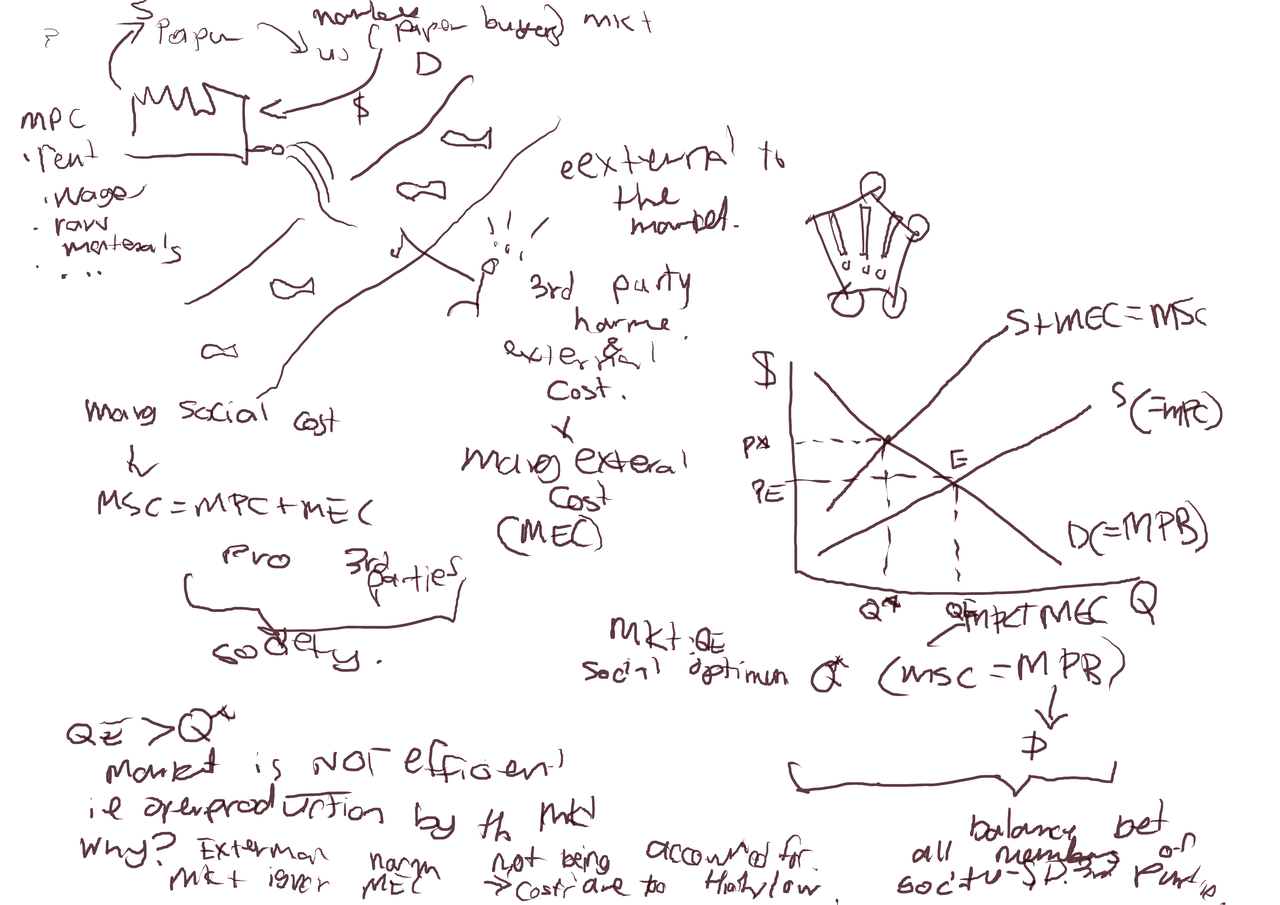 S
Paper
us
(paper buyers) mkt
D
$
MPC
· rent
· wage
· raw
materials
. . ..
external to
the
market.
3rd party
harme
&
external
cost.
marg exteral
cost
(MEC)
marg social cost
MSC = MPC + MEC
Pro 3rd
parties
society.
$
P*
PE
E
S+MEC = MSC
S(=MPC)
D(=MPB)
Q*
QE
Q
MPC+MEC
Mkt: QE
social optimum Q* (MSC = MPB)
D
QE > Q*
market is NOT efficient
ie overproduction by th mkt
why? External harm not being accounted for.
mkt ignor MEC → costs are to low.
balance bet
all members on
society - S D. 3rd Parties.